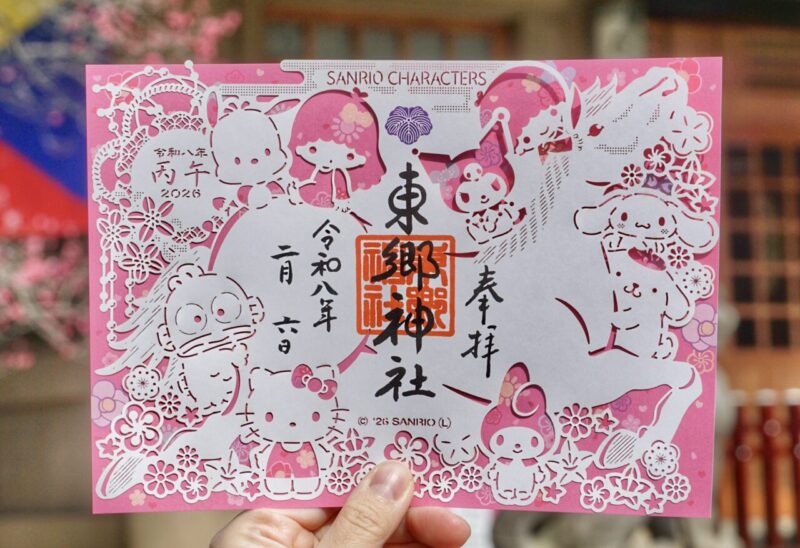 SANRIO CHARACTERS
令和八年
丙午
2026
奉拝
東郷神社
令和八年
二月 六日
© '26 SANRIO (L)